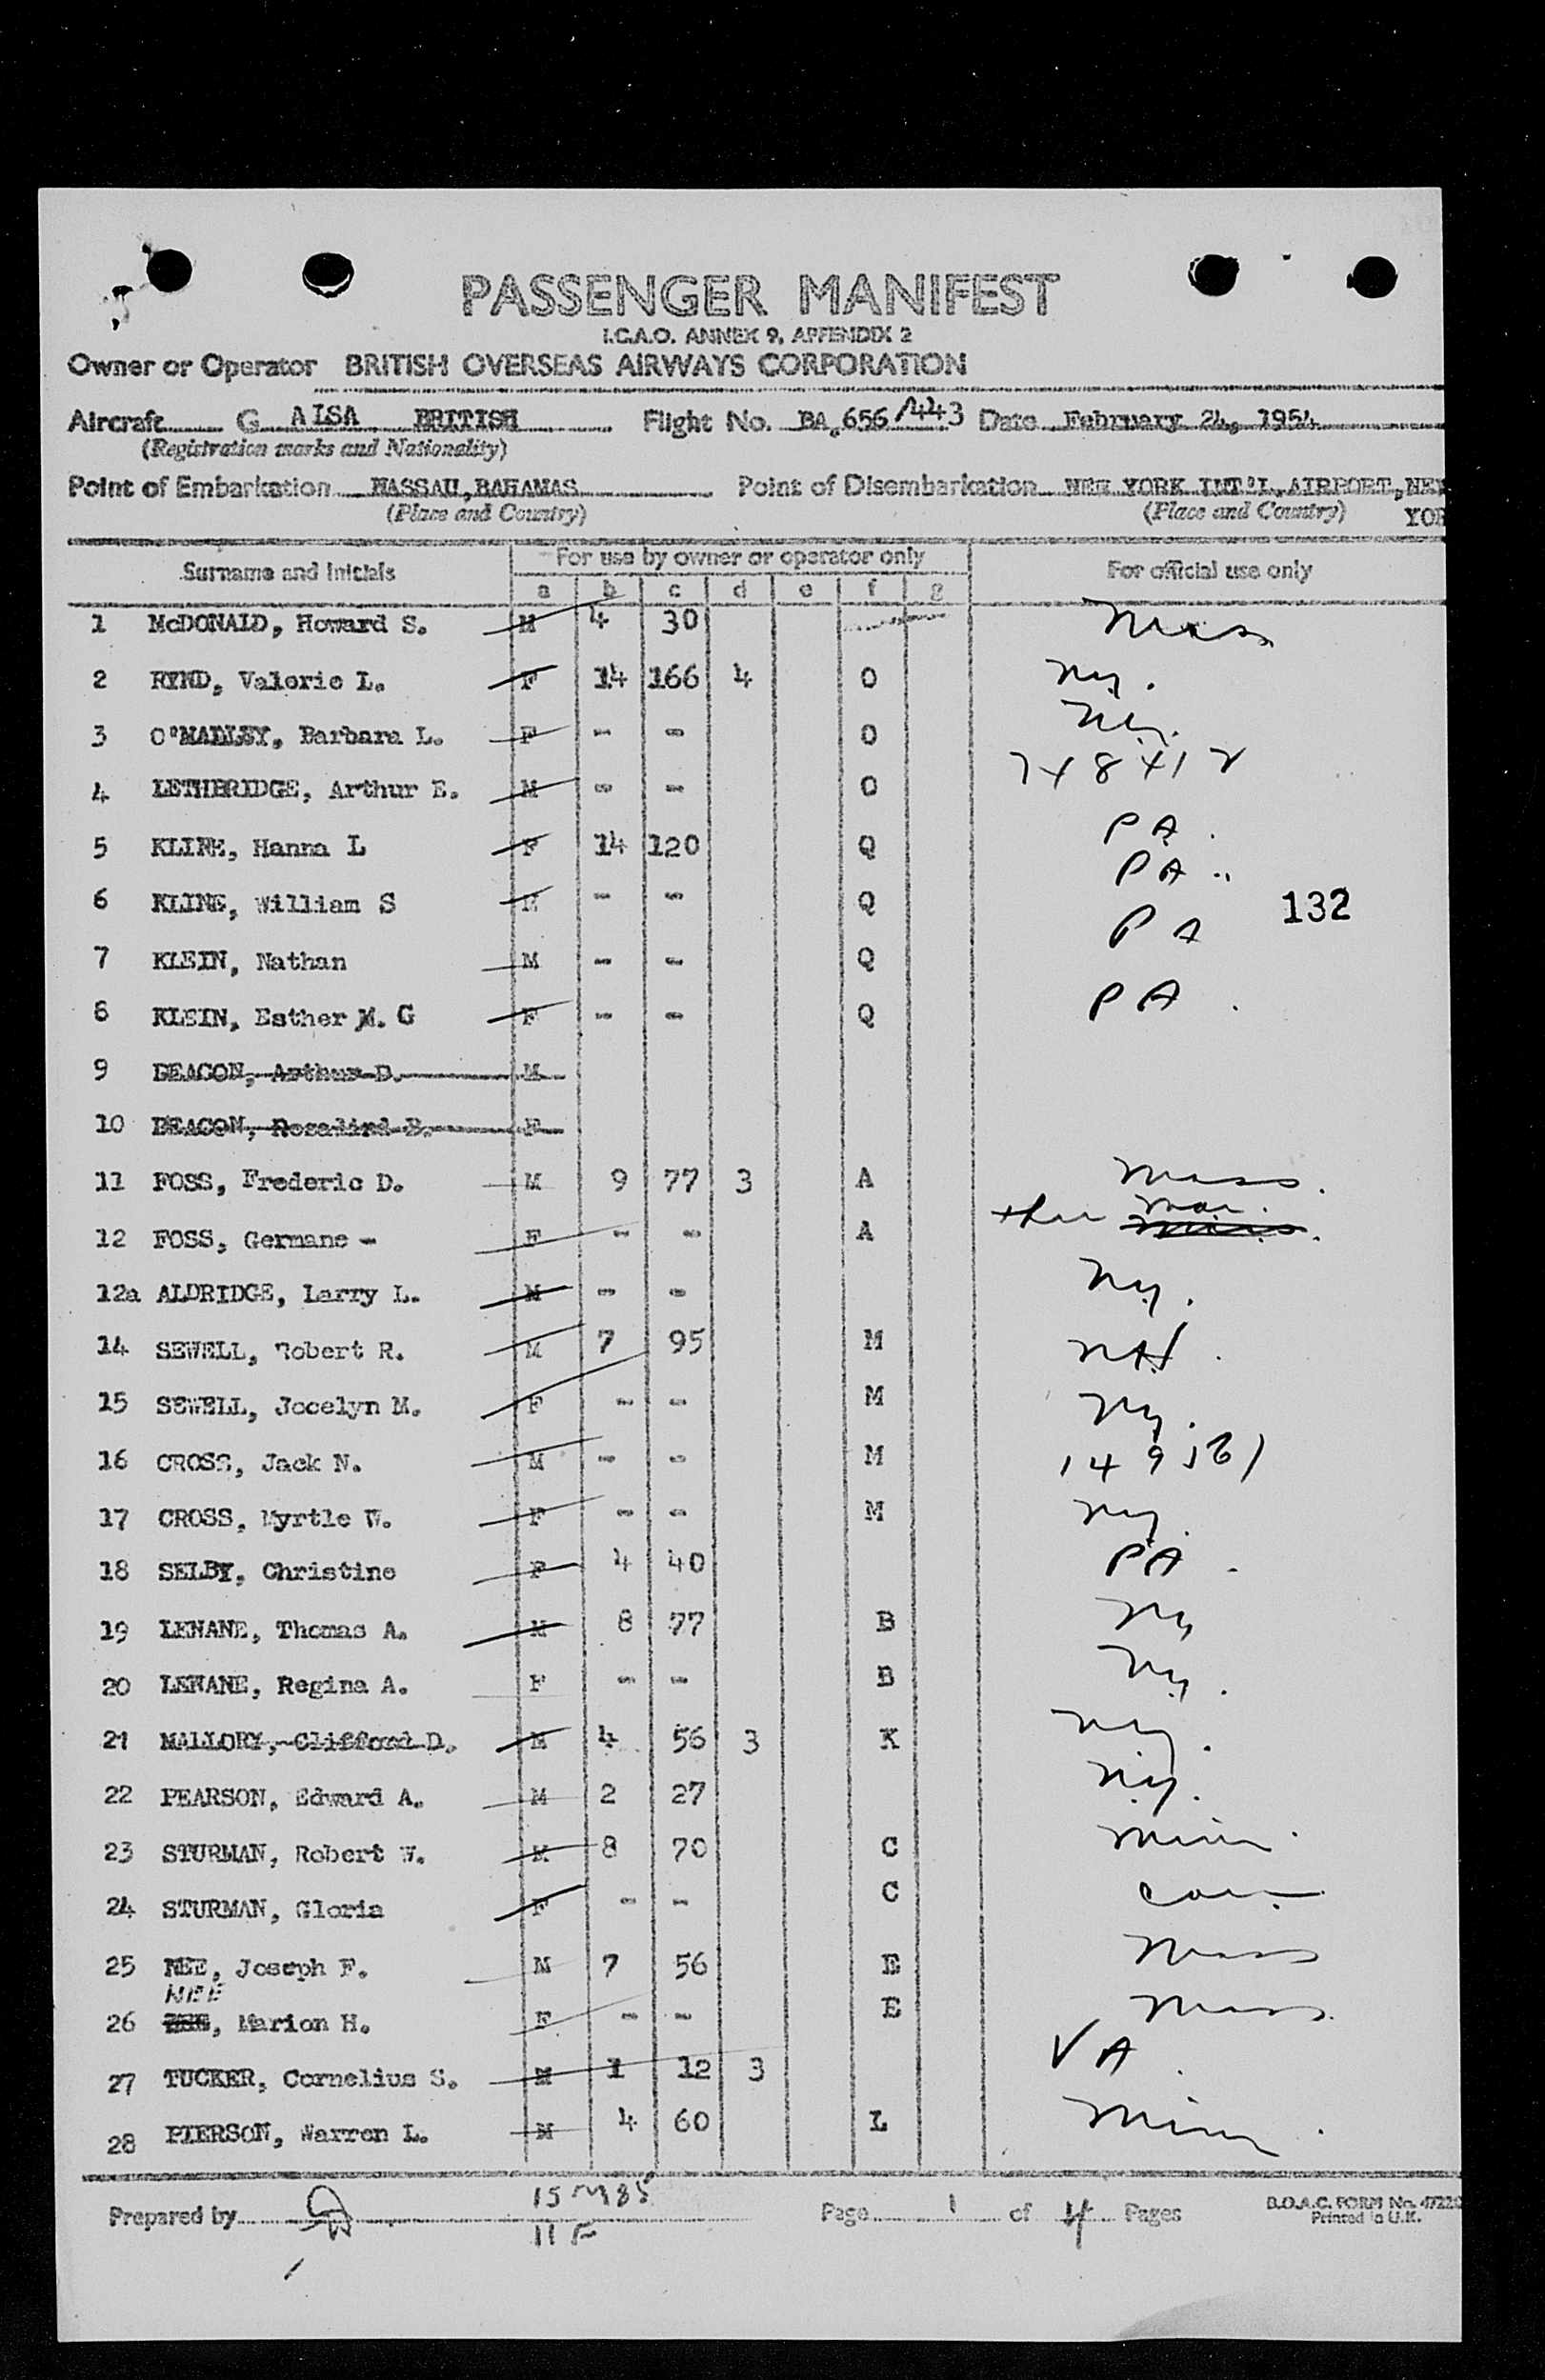 PASSENGER MANIFEST
I.C.A.O. ANNEX 9, APPENDIX 2
Owner or Operator BRITISH OVERSEAS AIRWAYS CORPORATION
Aircraft G ALSA BRITISH Flight No. BA.656/443 Date February 24, 1954
(Registration marks and Nationality)
Point of Embarkation NASSAU, BAHAMAS Point of Disembarkation NEW YORK INT'L, AIRPORT, NEW
(Place and Country) (Place and Country) YOR
Surname and Initials For use by owner or operator only For official use only
a b c d e f g
1 McDONALD, Howard S. M 4 30 Mass
2 RYND, Valerie L. F 14 166 4 O NY.
3 O'MALLEY, Barbara L. F - - O NY.
4 LETHBRIDGE, Arthur E. M - - O
5 KLINE, Hanna L F 14 120 Q PA.
6 KLINE, William S M - - Q PA 132
7 KLEIN, Nathan M - - Q PA
8 KLEIN, Esther M. G F - - Q PA.
9 DEACON, Arthur D. M
10 DEACON, Rosalind B. F
11 FOSS, Frederic D. M 9 77 3 A Mass.
12 FOSS, Germane - F - - A
12a ALDRIDGE, Larry L. M - - NY.
14 SEWELL, Robert R. M 7 95 M NH.
15 SEWELL, Jocelyn M. F - - M NY.
16 CROSS, Jack N. M - - M
17 CROSS, Myrtle W. F - - M NY.
18 SELBY, Christine F 4 40 PA.
19 LENANE, Thomas A. M 8 77 B NY
20 LENANE, Regina A. F - - B NY.
21 MALLORY, Clifford D. M 4 56 3 K NY.
22 PEARSON, Edward A. M 2 27 NY.
23 STURMAN, Robert W. M 8 70 C Minn.
24 STURMAN, Gloria F - - C
25 NEE, Joseph F. M 7 56 E Mass
NEE
26 , Marion H. F - - E Mass.
27 TUCKER, Cornelius S. M 1 12 3 VA.
28 PIERSON, Warren L. M 4 60 L Minn.
15 M 85
Prepared by Page 1 of 4 Pages B.O.A.C. FORM No.
11 F Printed in U.K.